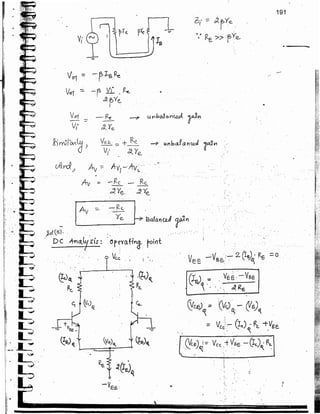 191
Vi
βre
βre
IB
Zi = 2βre
∵ RE >> βre
Vo1 = -β IB Rc
Vo1 = -β Vi/2βre . Rc
Vo1/Vi = -Rc/2re → unbalanced gain
Similarly, Vo2/Vi = +Rc/2re → unbalanced gain
And, Av = Av1 - Av2
Av = -Rc/2re - Rc/2re
Av = -Rc/re → balanced gain
DC Analysis : operating point
Vcc
(Ic)Q
(Ic)Q
Rc
Rc
C1
(Vc)Q
C2
+VBE-
(IE)Q
(VE)Q
(IE)Q
RE
2(IE)Q
-VEE
VEE - VBE - 2(IE)Q . RE = 0
(IE)Q = VEE - VBE / 2RE
(VCE)Q = (VC)Q - (VE)Q
= Vcc - (Ic)Q . Rc + VBE
(VCE)Q = Vcc + VBE - (Ic)Q . Rc